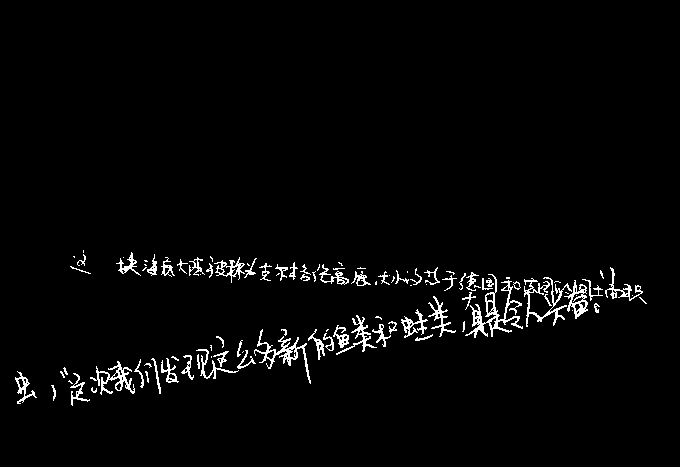 这块海底大陆被称为克尔格伦高原,大小约等于德国和法国的国土面积
虫,"这次我们发现这么多新的鱼类和蛙类,真是令人兴奋。"